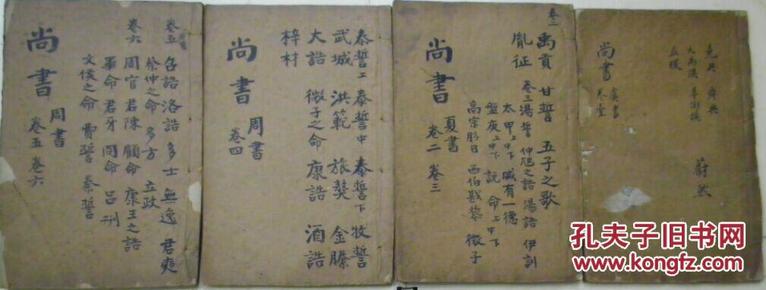 堯典 舜典
大禹謨
益稷
尚書
虞書
卷壹
蔚然
卷二
禹貢 甘誓 五子之歌
胤征
卷三 湯誓 仲虺之誥 湯誥 伊訓
太甲上中下 咸有一德
盤庚上中下 說命上中下
高宗肜日 西伯戡黎 微子
尚書
夏書
卷二 卷三
泰誓上 泰誓中 泰誓下 牧誓
武城 洪範 旅獒 金縢
大誥 微子之命 康誥 酒誥
梓材
尚書
周書
卷四
卷五 召誥 洛誥 多士 無逸 君奭
蔡仲之命 多方 立政
卷六 周官 君陳 顧命 康王之誥
畢命 君牙 冏命 呂刑
文侯之命 費誓 秦誓
尚書
周書
卷五 卷六
孔夫子旧书网
www.kongfz.com